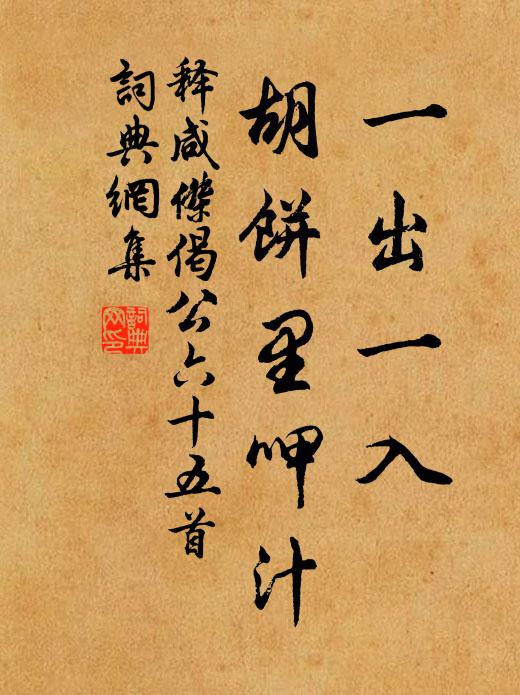 一出一入
胡餅里呷汁
释咸傑偈公六十五首
詞典網集
詞典網印